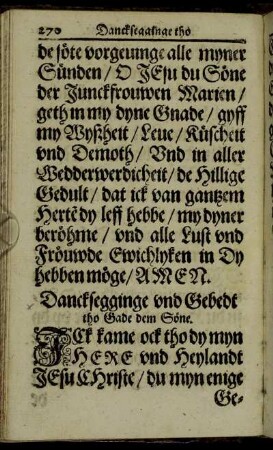 270 Dancksegginge tho
de söte vorgeuinge alle myner
Sünden / O JEsu du Söne
der Junckfrouwen Marien /
geth in my dyne Gnade / gyff
my Wyßheit / Leue / Küscheit
vnd Demoth / Vnd in aller
Wedderwerdicheit / de Hillige
Gedult / dat ick van gantzem
Hertē dy leff hebbe / my dyner
beröhme / vnd alle Lust vnd
Fröuwde Ewichlyken in Dy
hebben möge / AMEN.
Dancksegginge vnd Gebedt
tho Gade dem Söne.
ICk kame ock tho dy myn
HERE vnd Heylandt
JEsu CHriste / du myn enige
Ge-